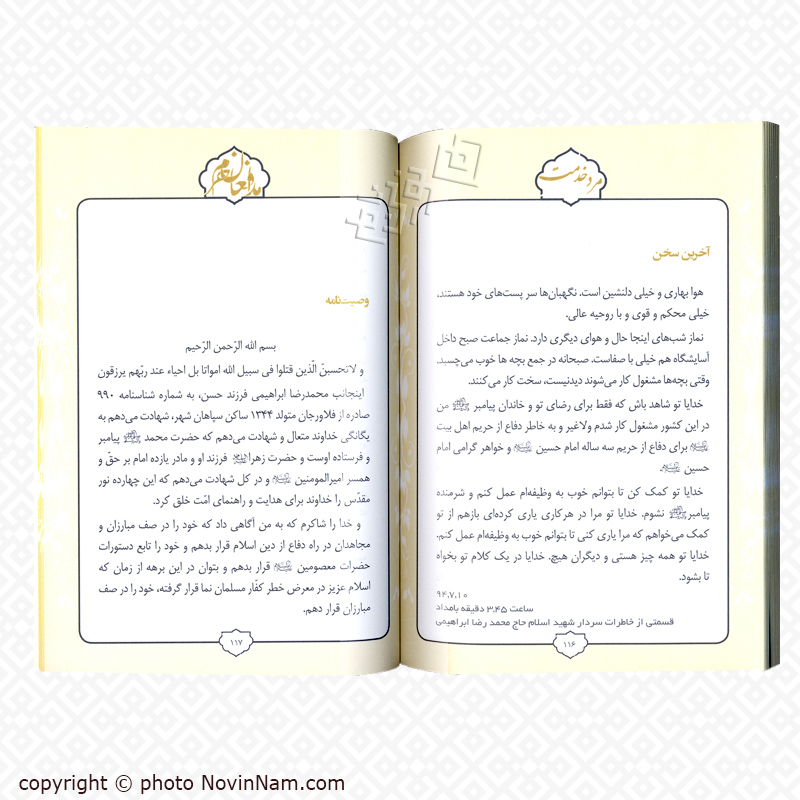 مرد خدمت
آخرین سخن
هوا بهاری و خیلی دلنشین است. نگهبان‌ها سر پست‌های خود هستند،
خیلی محکم و قوی و با روحیه عالی.
نماز شب‌های اینجا حال و هوای دیگری دارد. نماز جماعت صبح داخل
آسایشگاه هم خیلی با صفاست. صبحانه در جمع بچه ها خوب می‌چسبد.
وقتی بچه‌ها مشغول کار می‌شوند دیدنیست، سخت کار می‌کنند.
خدایا تو شاهد باش که فقط برای رضای تو و خاندان پیامبر ﷺ من
در این کشور مشغول کار شدم ولاغیر و به خاطر دفاع از حریم اهل بیت
برای دفاع از حریم سه ساله امام حسین و خواهر گرامی امام
حسین
خدایا تو کمک کن تا بتوانم خوب به وظیفه‌ام عمل کنم و شرمنده
پیامبر ﷺ نشوم. خدایا تو مرا در هرکاری یاری کرده‌ای بازهم از تو
کمک می‌خواهم که مرا یاری کنی تا بتوانم خوب به وظیفه‌ام عمل کنم.
خدایا تو همه چیز هستی و دیگران هیچ. خدایا در یک کلام تو بخواه
تا بشود.
۹۴،۷،۱۰
ساعت ۳،۴۵ دقیقه بامداد
قسمتی از خاطرات سردار شهید اسلام حاج محمد رضا ابراهیمی
۱۱۶
مدافعان حرم
وصیت‌نامه
بسم الله الرّحمن الرّحیم
و لاتحسبنّ الّذین قتلوا فی سبیل الله امواتا بل احیاء عند ربّهم یرزقون
اینجانب محمدرضا ابراهیمی فرزند حسن، به شماره شناسنامه ۹۹۰
صادره از فلاورجان متولد ۱۳۴۴ ساکن سپاهان شهر، شهادت می‌دهم به
یگانگی خداوند متعال و شهادت می‌دهم که حضرت محمد ﷺ پیامبر
و فرستاده اوست و حضرت زهرا فرزند او و مادر یازده امام بر حقّ و
همسر امیرالمومنین و در کل شهادت می‌دهم که این چهارده نور
مقدّس را خداوند برای هدایت و راهنمای امّت خلق کرد.
و خدا را شاکرم که به من آگاهی داد که خود را در صف مبارزان و
مجاهدان در راه دفاع از دین اسلام قرار بدهم و خود را تابع دستورات
حضرات معصومین قرار بدهم و بتوان در این برهه از زمان که
اسلام عزیز در معرض خطر کفّار مسلمان نما قرار گرفته، خود را در صف
مبارزان قرار دهم.
۱۱۷
copyright © photo NovinNam.com